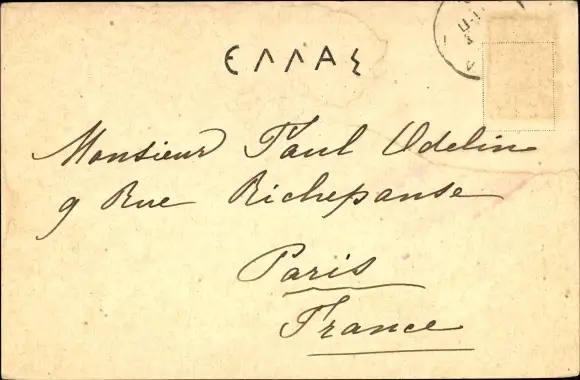 ΕΛΛΑΣ
Monsieur Paul Odelin
9 Rue Richepanse
Paris
France